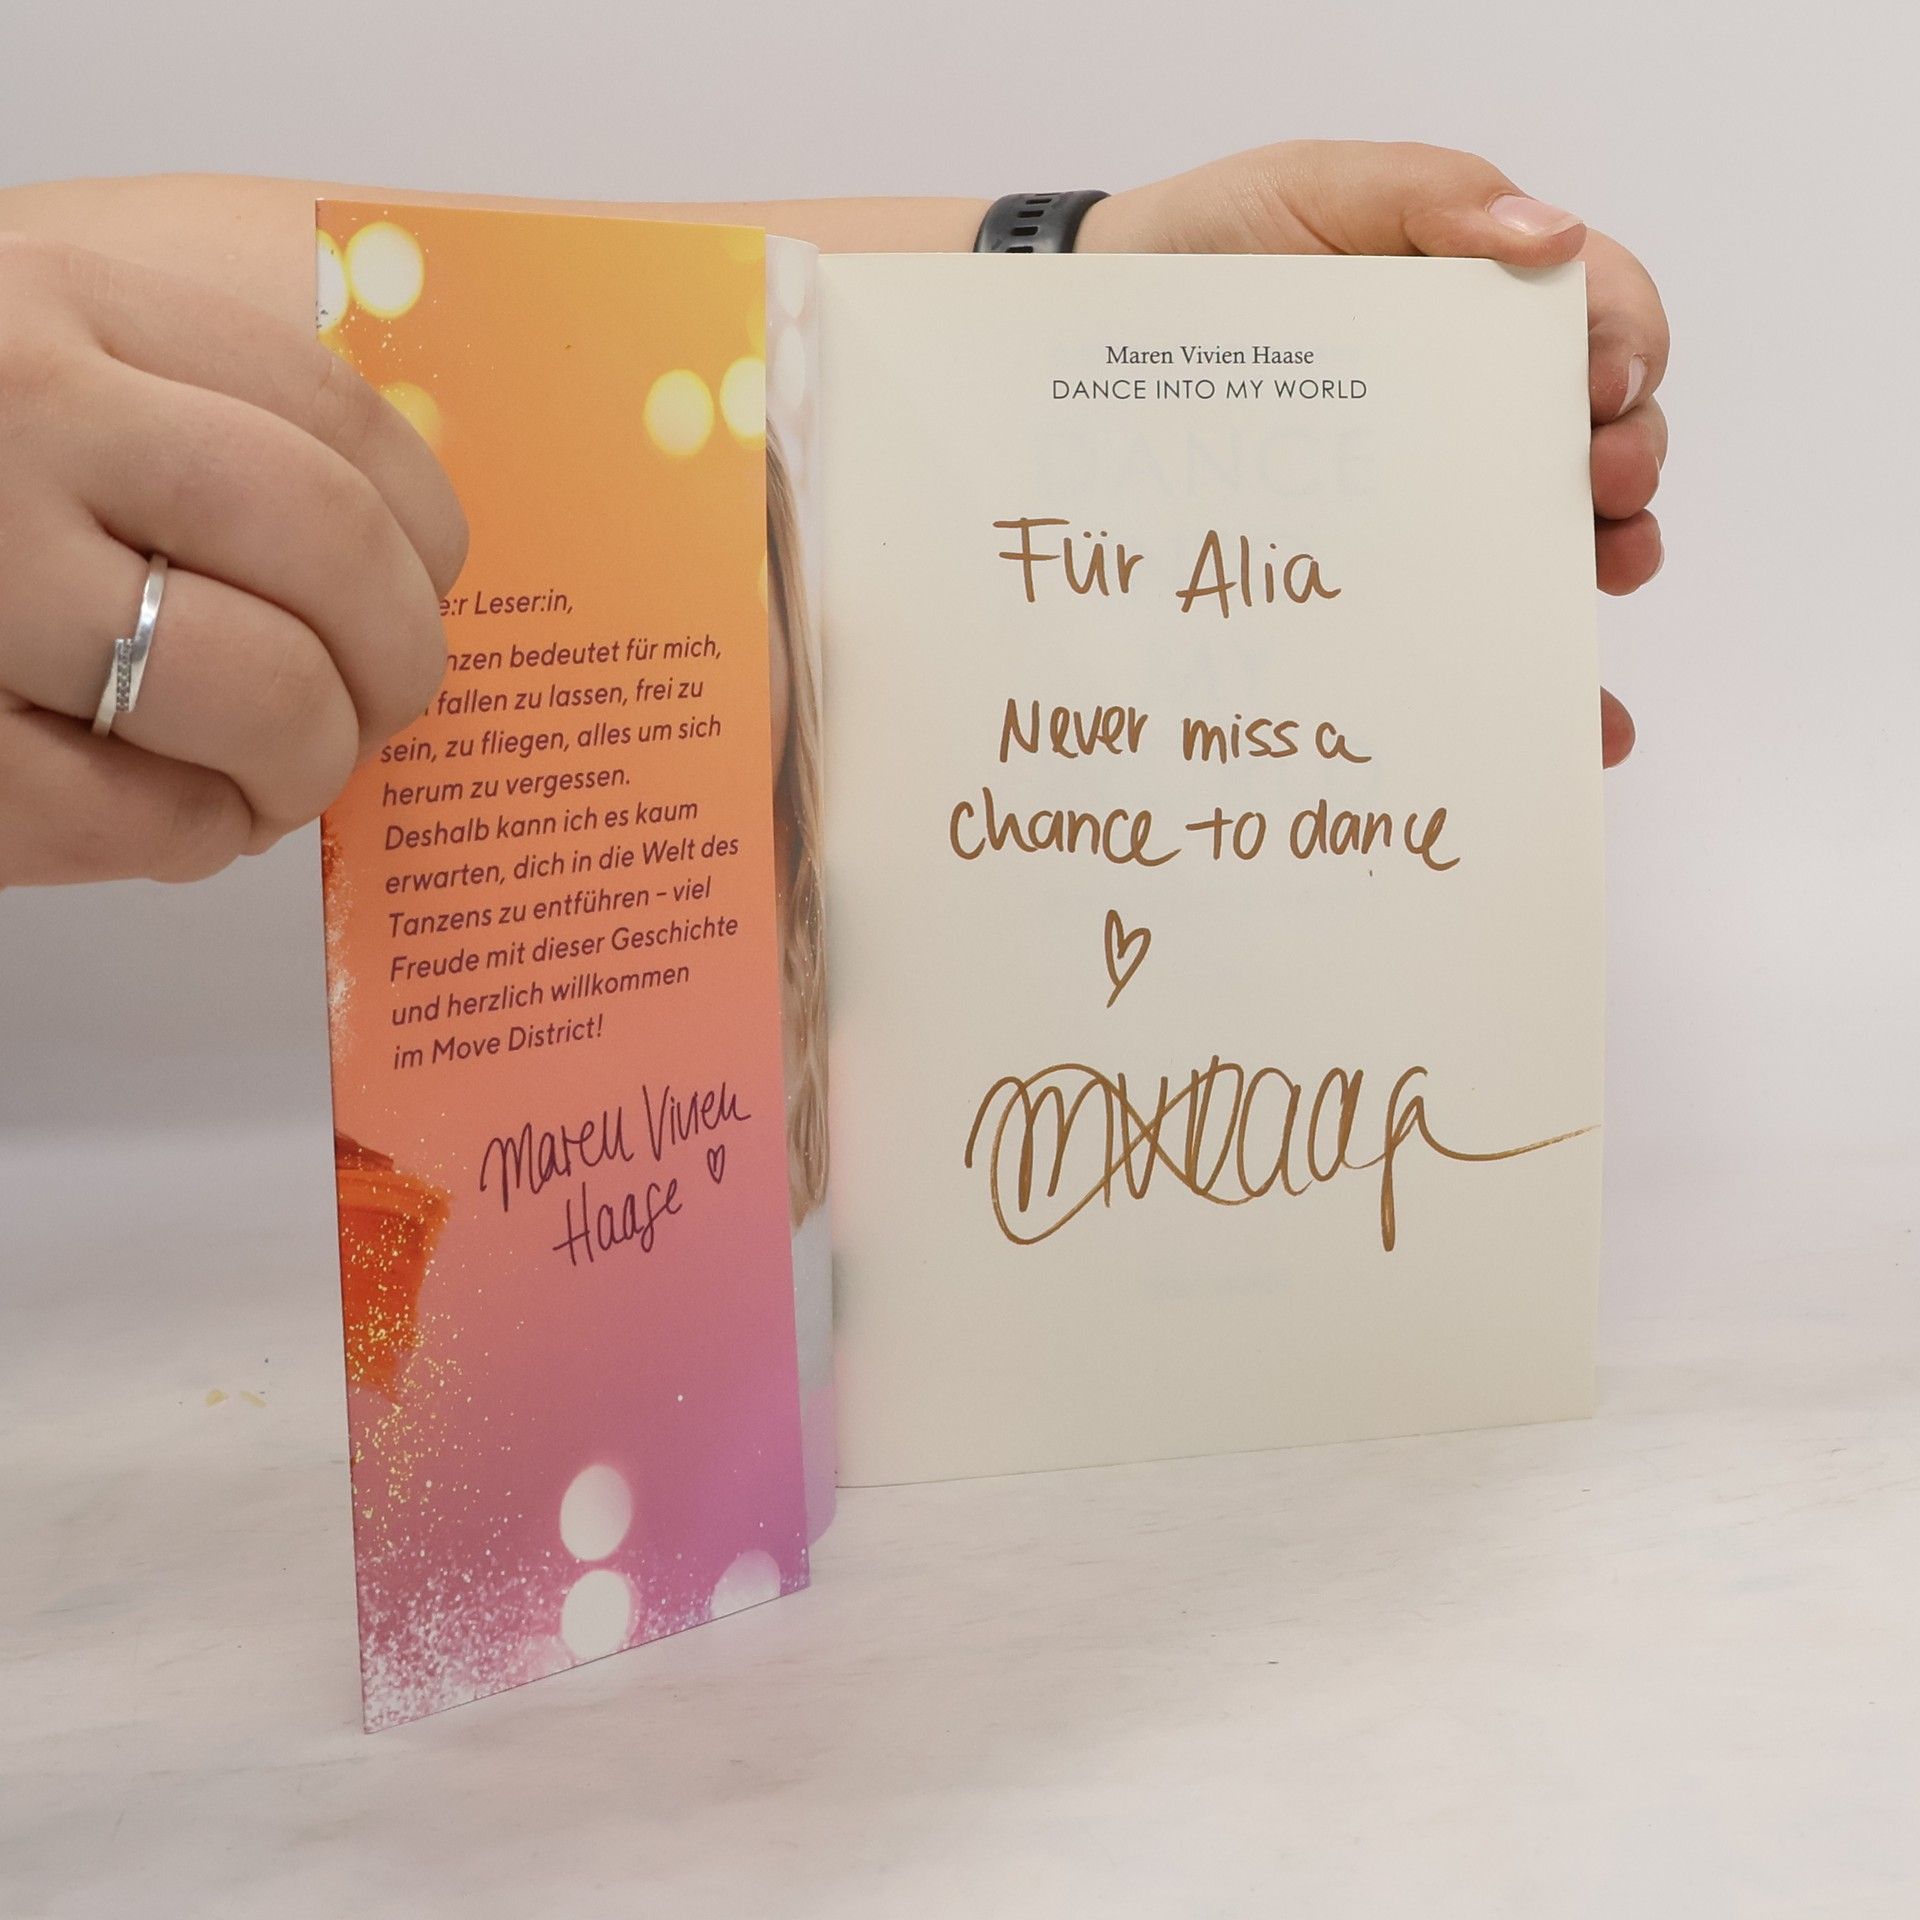 e:r Leser:in,
nzen bedeutet für mich,
fallen zu lassen, frei zu
sein, zu fliegen, alles um sich
herum zu vergessen.
Deshalb kann ich es kaum
erwarten, dich in die Welt des
Tanzens zu entführen – viel
Freude mit dieser Geschichte
und herzlich willkommen
im Move District!
Maren Vivien
Haase
Maren Vivien Haase
DANCE INTO MY WORLD
Für Alia
Never miss a
chance to dance